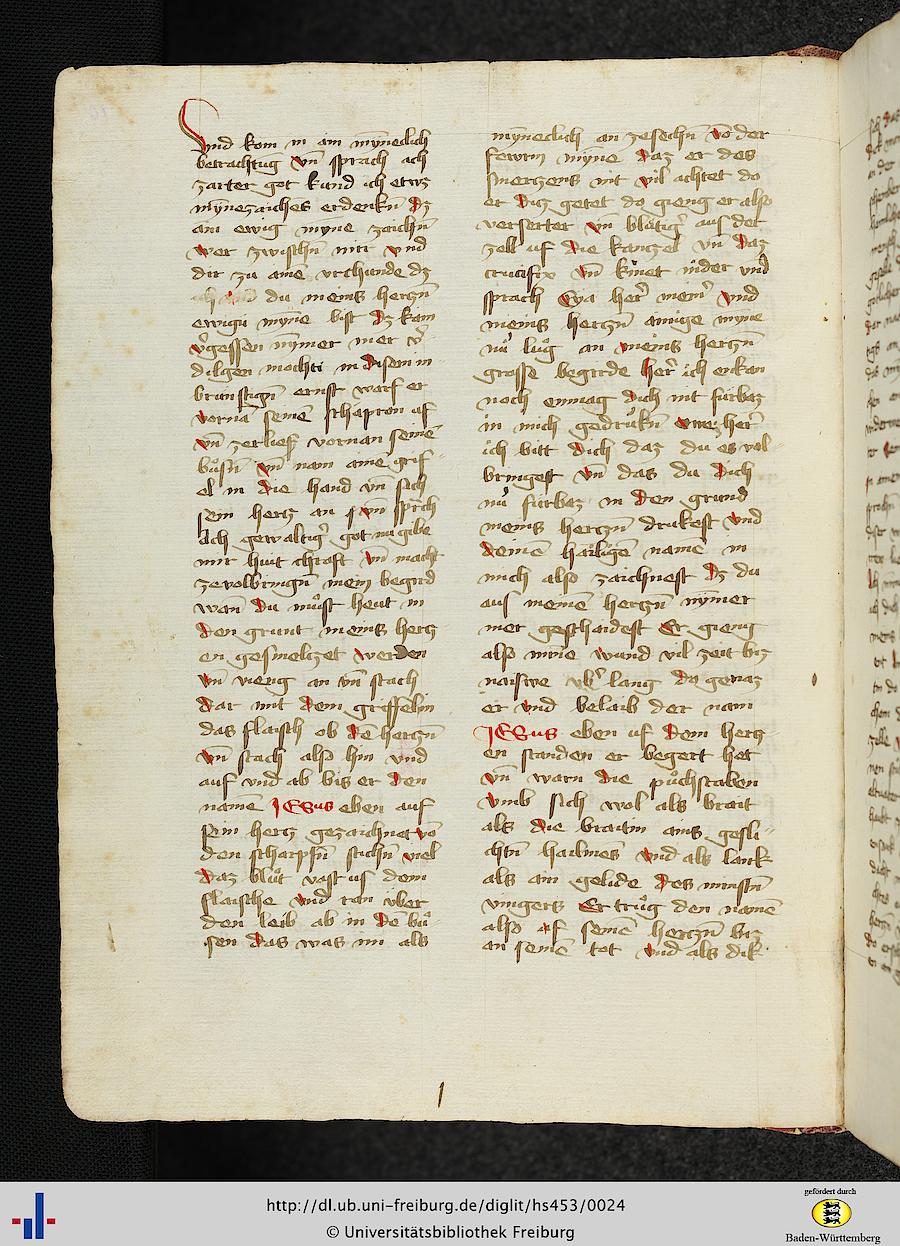 Vnd kom in ain mynneclich
betrachtūg vn̄ sprach ach
zarter got kund ich etwz
mynnezaiches erdenkn̄ dz
ain ewig mynne zaichn̄
wer zwischn̄ mir vnd
dir zu aine vrchunde dz
du meins herczn̄
ewigū mynne bist dz kain
v̓gessen nymer mer v̓
dilgen mochti in disem in
brunstign̄ ernst warf er
vorna seinē schapron uf
vn̄ zerliesz vornan seinē
bůsn̄ vn̄ nam aine grif
el in die hand vn̄ sach
sein hercz an vn̄ sprach
Ach gewaltig̓ got nu gibe
mir hiut chraft vn̄ macht
zevolbringn̄ mein begird
wan du můst heut in
den grunt meins hercz
en gesmelczet werden
vn̄ vieng an vn̄ stach
dar mit dem griffelin
das flaisch ob dē herczn̄
vn̄ stach also hin vnd
auf vnd ab bis er den
namē JESus eben auf
sein hercz gezaichnet vō
den scharpfn̄ stichn̄ viel
daz blůt vast us dem
flaische vnd ran vber
den leib ab in dē bů
sen das was im als
mynneclich an zesechn̄ vō der
fewrin mynne daz er des
smerczens nit vil achtet do
er diz getet do gieng er also
verserter vn̄ blůtig̓ aus der
zell uf die kanczel vn̄ daz
crucifix vn̄ kniet nider vnd
sprach Eya her̓ mein̓ vnd
meins herczn̄ ainige mynne
nů lůg an meins herczn̄
grosse begirde her̓ ich enkan
noch enmag dich nit fürbaz
in mich gedrukn̄ owe her̓
ich bitt dich daz du es vol
bringest vn̄ das du dich
nů fürbaz in den grund
meins herczn̄ drukest vnd
deinē hailigē namē in
mich also zaichnest dz du
aus meinē herczn̄ nymer
mer geschaidest Er gieng
also mīne wund vil zeit biz
naiswe vb̓ lang do genaz
er vnd belaib der nam
JESus eben uf dem hercz
en standen er begert het
vn̄ warn die půchstaben
vmb sich wol als brait
als die braitin ains gesli
chtn̄ halmes vnd als lank
als ain gelide des minstn̄
vingers Er trůg den namē
also uf seinē herczn̄ biz
an seinē tot vnd als dik
http://dl.ub.uni-freiburg.de/diglit/hs453/0024
© Universitätsbibliothek Freiburg
gefördert durch
Baden-Württemberg